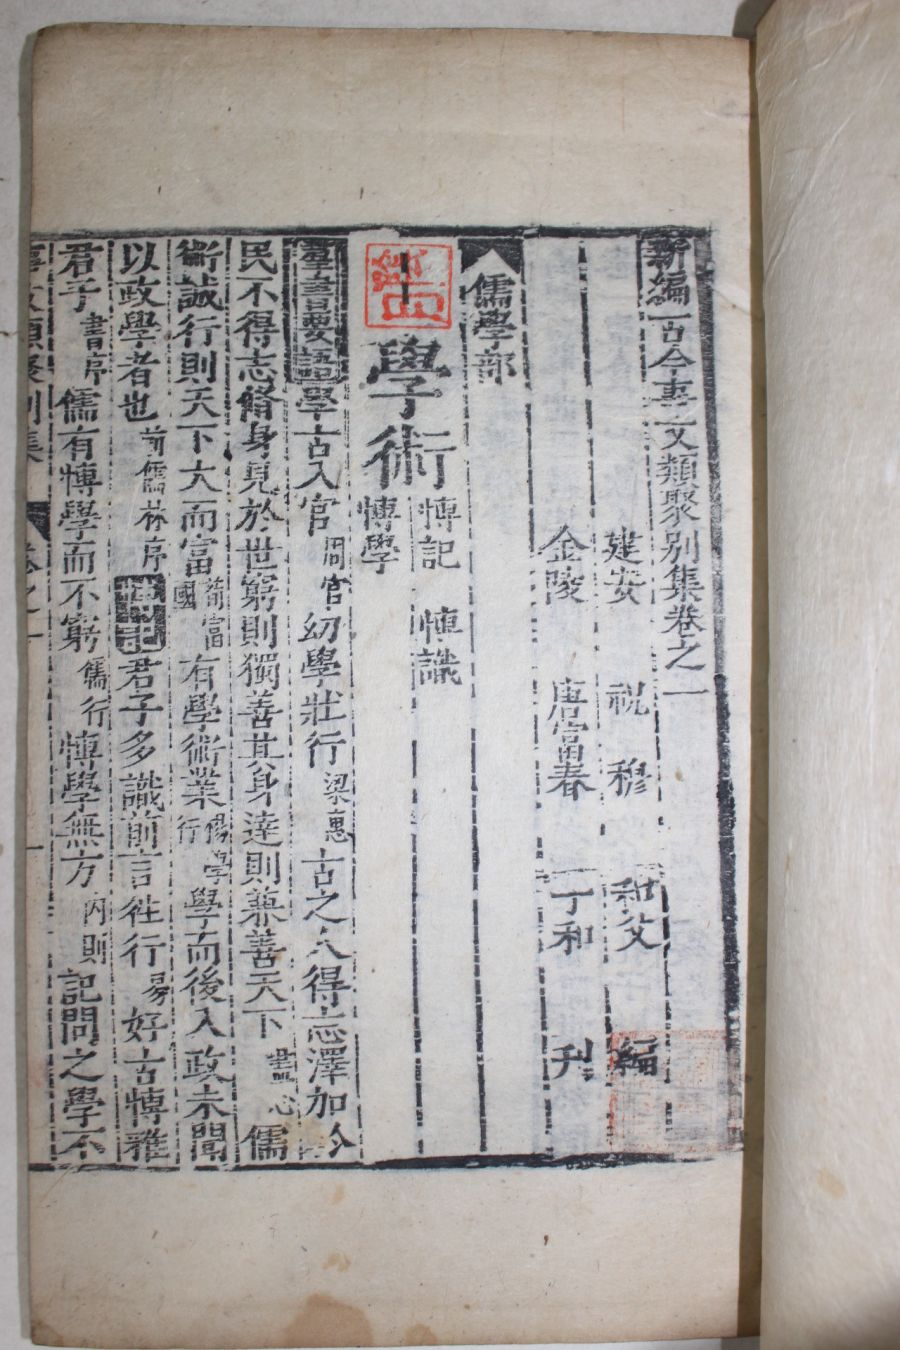 新編古今事文類聚別集卷之一
建安 祝 穆 和父 編
金陵 唐富春 丁和 刋
儒學部
學術 博記 博識 博學
群書要語學古入官周官幼學壯行梁惠古之人得志澤加於
民不得志脩身見於世窮則獨善其身達則兼善天下盡心儒
術誠行則天下大而富荀富國有學術業行 學學而後入政未聞
以政學者也前儒林序博記君子多識前言徃行易好古博雅
君子書序儒有博學而不窮儒行博學無方內則記問之學不
事文類聚別集 卷之一 一